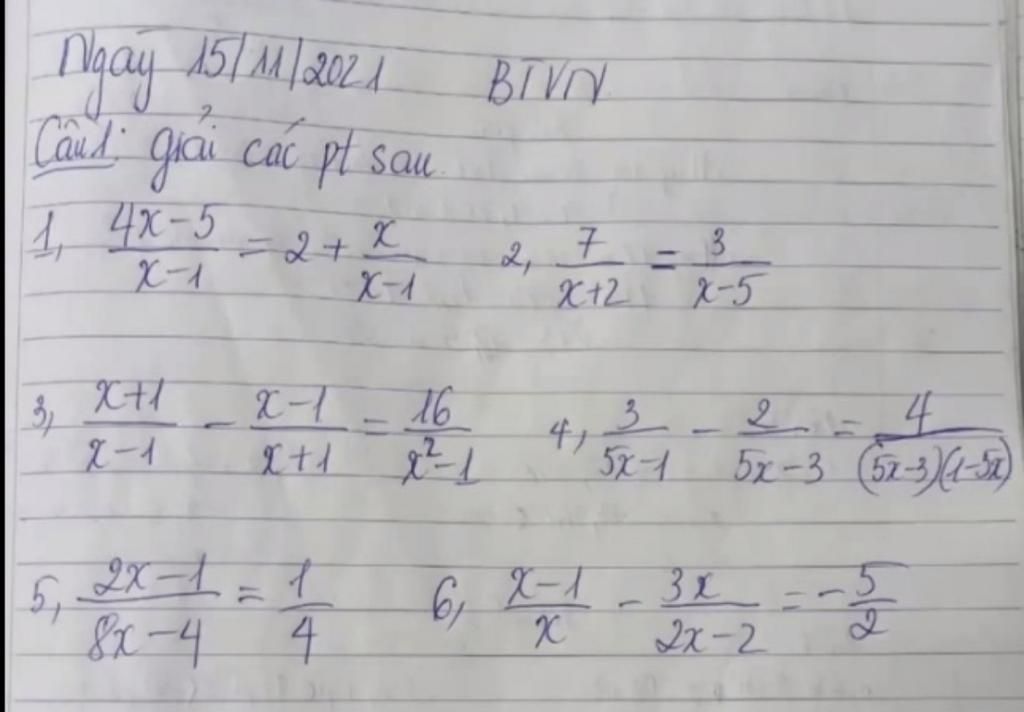 Ngày 15/11/2021 BTVN
Câu1: giải các pt sau.
1, (4x-5)/(x-1) = 2 + x/(x-1) 2, 7/(x+2) = 3/(x-5)
3, (x+1)/(x-1) - (x-1)/(x+1) = 16/(x²-1) 4, 3/(5x-1) - 2/(5x-3) = 4/((5x-3)(1-5x))
5, (2x-1)/(8x-4) = 1/4 6, (x-1)/x - 3x/(2x-2) = -5/2